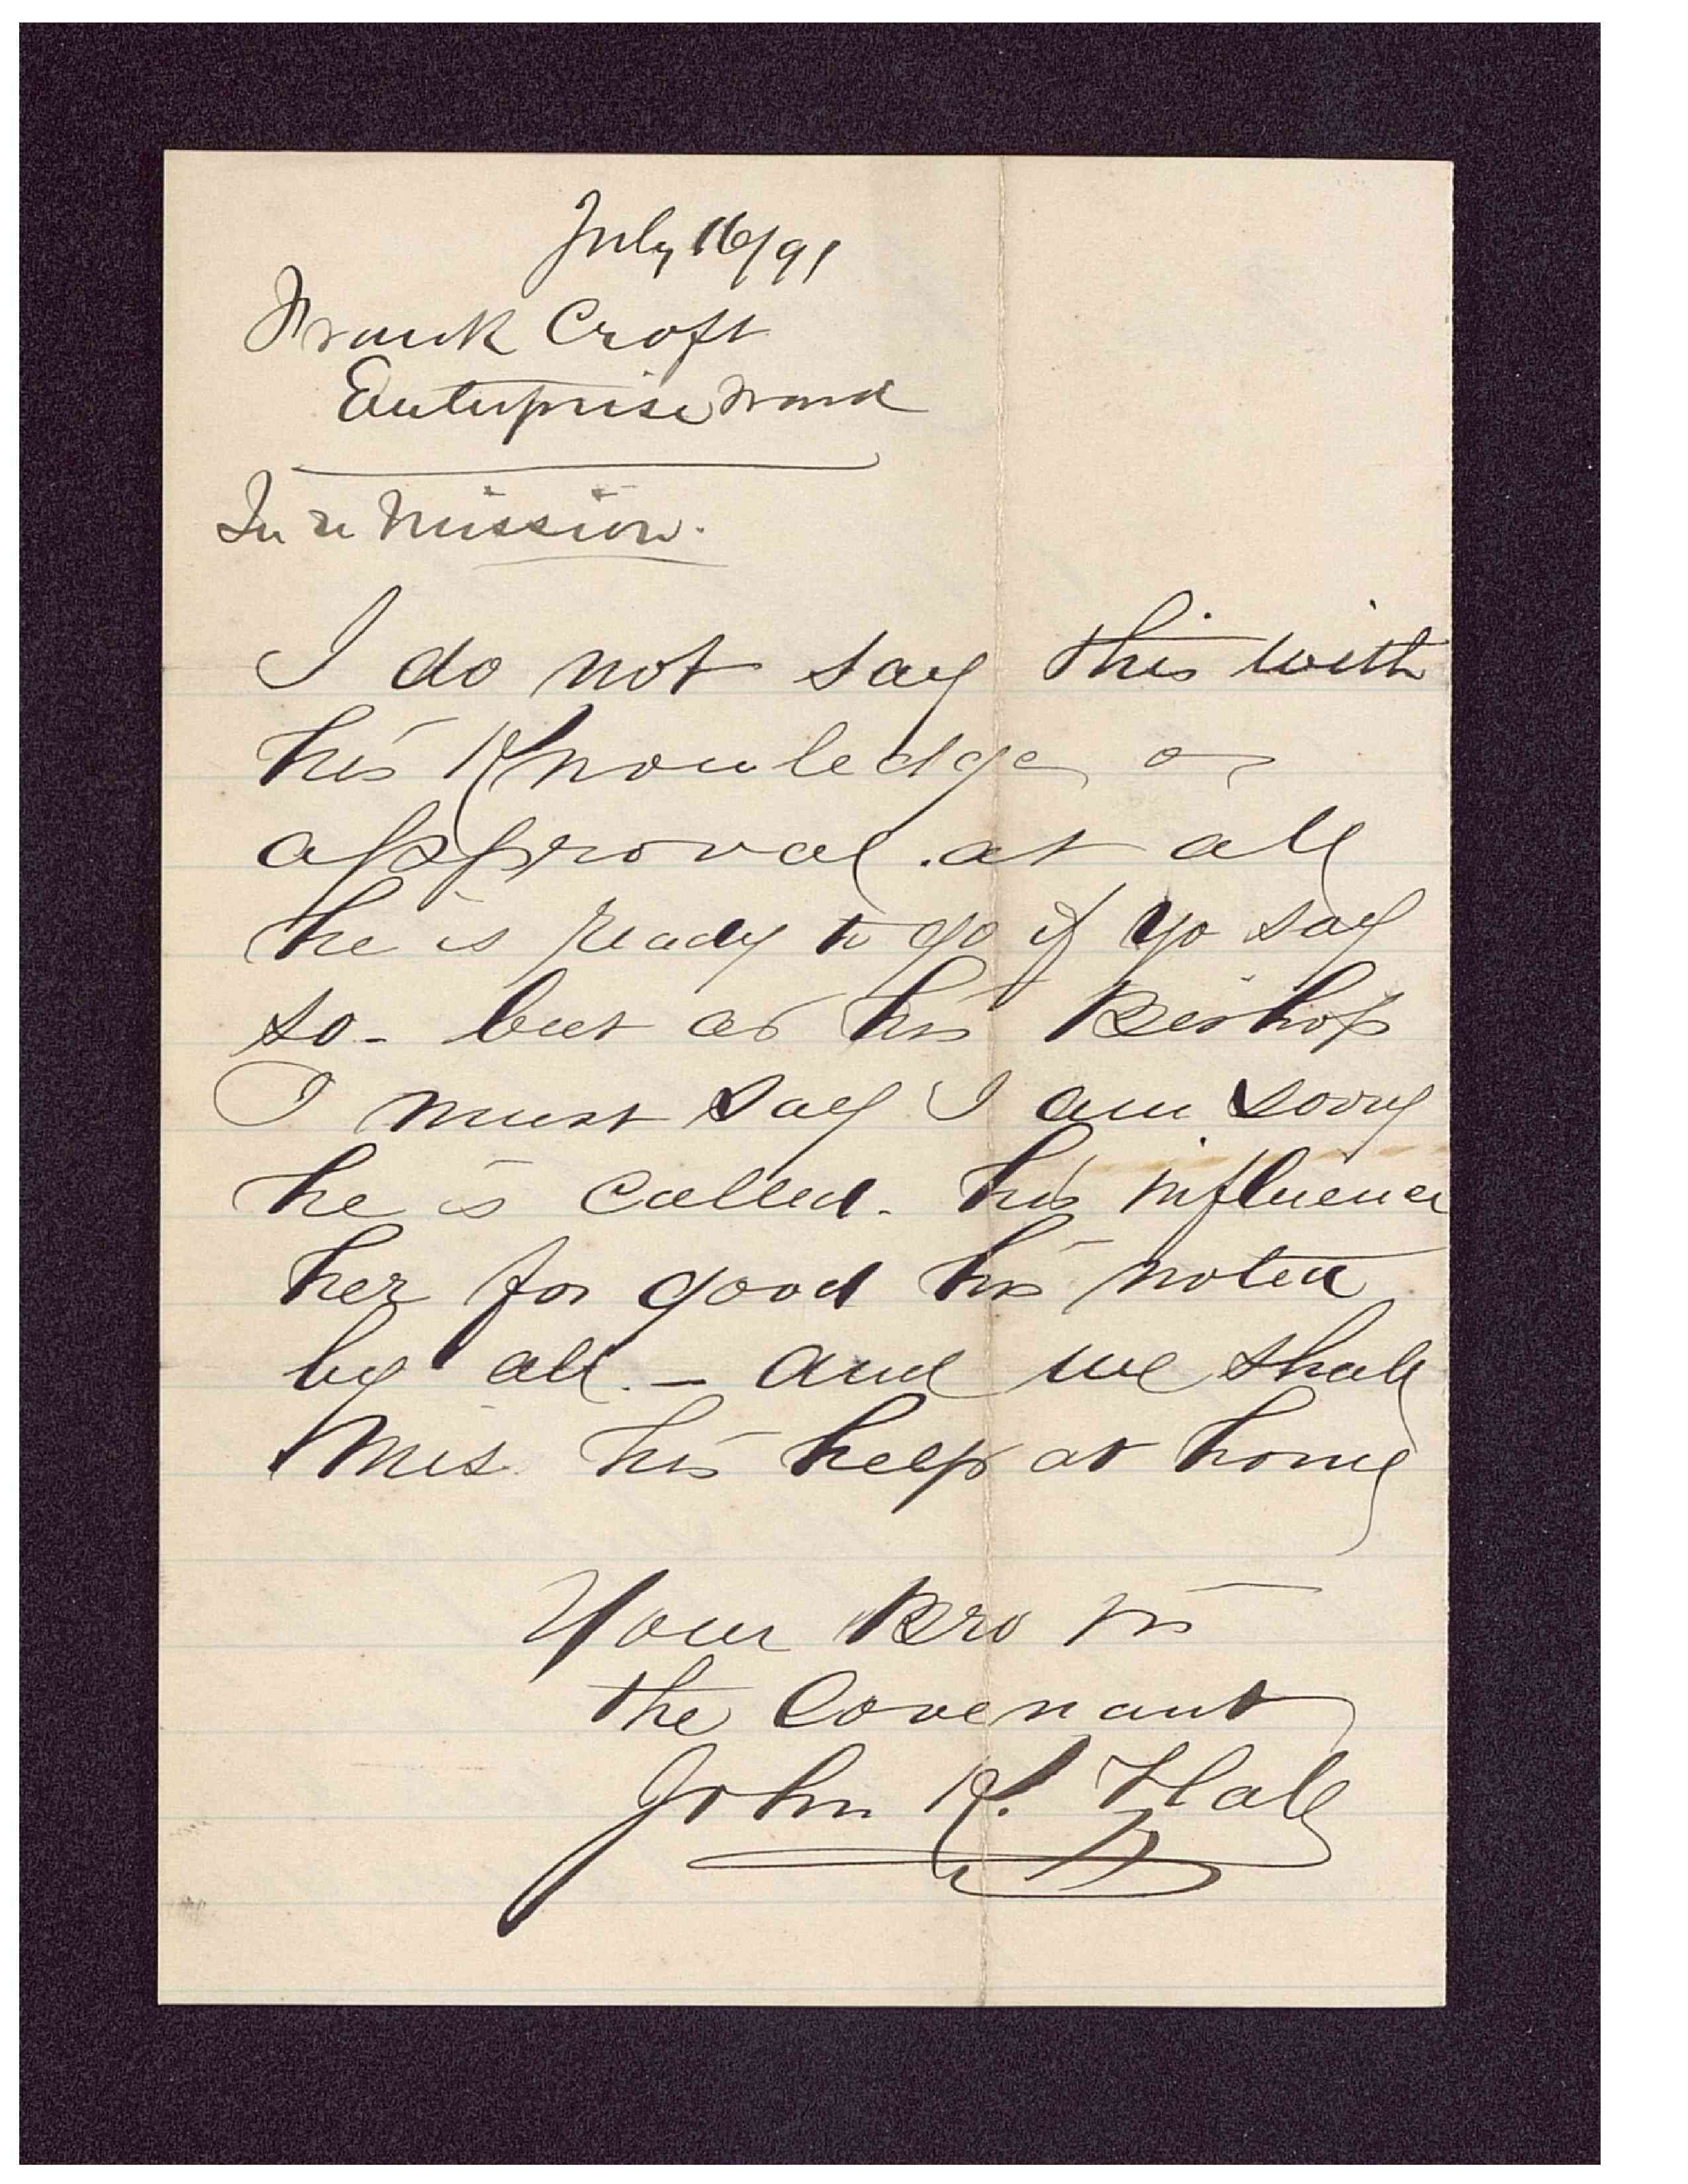 July 16/91
Frank Croft
Enterprise Ward
In re Mission.
I do not say this with
his Knowledge or
approval. at all
he is ready to go if yo say
so - but as his Bishop
I must say I am sorry
he is called - his influence
her for good his noted
by all. - and we shall
Mis his help at home
Your Bro in
the Covenant
John K. Hall